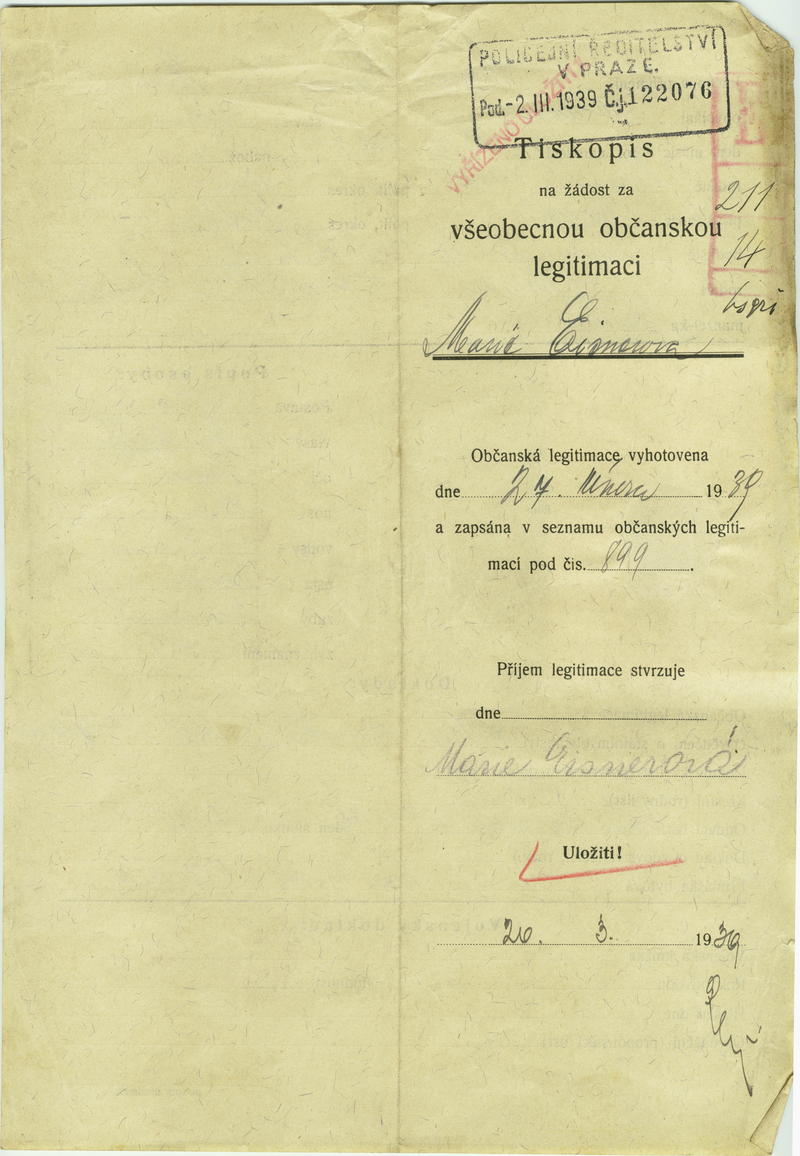 POLICEJNÍ ŘEDITELSTVÍ
V PRAZE.
Pod.-2. III. 1939 Č.j. 122076
VYŘÍZENO
Tiskopis
na žádost za
211
všeobecnou občanskou
14
legitimaci
Marie Eisnerová
Občanská legitimace vyhotovena
dne 27. února 1939
a zapsána v seznamu občanských legiti-
mací pod čís. 899.
Příjem legitimace stvrzuje
dne
Marie Eisnerová
Uložiti!
20. 3. 1939